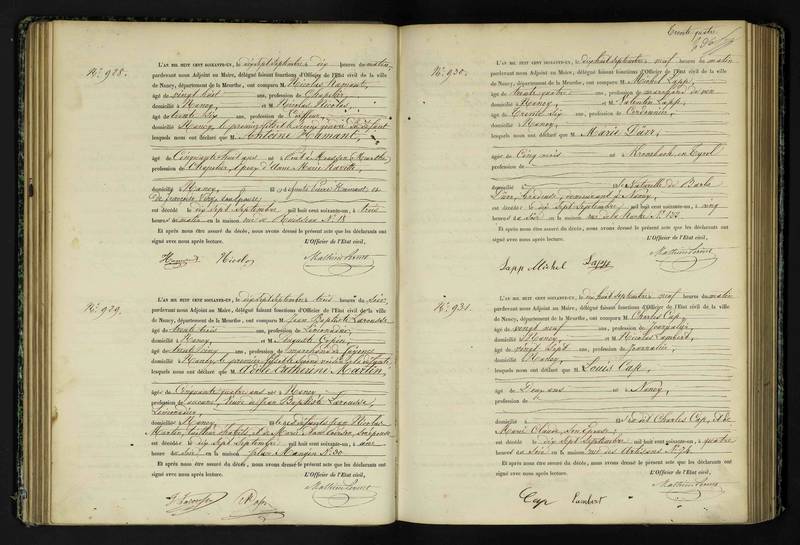 N.° 928.
L'AN MIL HUIT CENT SOIXANTE-UN, le dix sept Septembre dix heures du matin,
pardevant nous Adjoint au Maire, délégué faisant fonctions d'Officier de l'Etat civil de la ville
de Nancy, département de la Meurthe, ont comparu M. Nicolas Hamant,
âgé de vingt huit ans, profession de Chapelier,
domicilié à Nancy, et M. Nicolas Nicolas,
âgé de trente six ans, profession de Coiffeur,
domicilié à Nancy, le premier fils et le second gendre du défunt
lesquels nous ont déclaré que M. Antoine Hamant,
âgé de Cinquante huit ans né à
profession de Chapelier, époux d'Anne Marie
domicilié à Nancy, fils de
de Françoise
est décédé le dix Sept Septembre mil huit cent soixante-un, à trois
heures du matin en la maison rue du Ruisseau N.° 18
Et après nous être assuré du décès, nous avons dressé le présent acte que les déclarants ont
signé avec nous après lecture. L'Officier de l'Etat civil,
Hamant Nicolas
N.° 929.
L'AN MIL HUIT CENT SOIXANTE-UN, le dix sept Septembre trois heures du Soir,
pardevant nous Adjoint au Maire, délégué faisant fonctions d'Officier de l'Etat civil de la ville
de Nancy, département de la Meurthe, ont comparu M. Jean Baptiste Larousse
âgé de trente trois ans, profession de Limonadier,
domicilié à Nancy, et M. Auguste Copin,
âgé de trente cinq ans, profession de marchand de
domicilié à Nancy, le premier fils et le second voisin de la défunte
lesquels nous ont déclaré que M. Adèle Catherine Martin,
âgé de Cinquante quatre ans né à Nancy
profession d'aucune, Veuve de Jean Baptiste Larousse,
Limonadier,
domicilié à Nancy, fille des défunts Jean Nicolas
Martin, et de Marie son épouse
est décédé le dix sept Septembre mil huit cent soixante-un, à une
heure du Soir en la maison place Mengin N.° 30
Et après nous être assuré du décès, nous avons dressé le présent acte que les déclarants ont
signé avec nous après lecture. L'Officier de l'Etat civil,
Trente quatre
N.° 930.
L'AN MIL HUIT CENT SOIXANTE-UN, le dix huit Septembre neuf heures du matin
pardevant nous Adjoint au Maire, délégué faisant fonctions d'Officier de l'Etat civil de la ville
de Nancy, département de la Meurthe, ont comparu M. Michel Sapp,
âgé de trente quatre ans, profession de marchand de vin
domicilié à Nancy, et M. Valentin Sapp,
âgé de Trente six ans, profession de Cordonnier,
domicilié à Nancy,
lesquels nous ont déclaré que M. Marie Dürr,
âgé de Cinq mois né à en Tyrol
profession de
domicilié à fille Naturelle de Barbe
Dürr, demeurant à Nancy,
est décédé le dix Sept Septembre mil huit cent soixante-un, à cinq
heures du Soir en la maison
Et après nous être assuré du décès, nous avons dressé le présent acte que les déclarants ont
signé avec nous après lecture. L'Officier de l'Etat civil,
Sapp Michel Sapp
N.° 931.
L'AN MIL HUIT CENT SOIXANTE-UN, le dix huit Septembre neuf heures du matin
pardevant nous Adjoint au Maire, délégué faisant fonctions d'Officier de l'Etat civil de la ville
de Nancy, département de la Meurthe, ont comparu M. Charles Cap,
âgé de vingt neuf ans, profession de Journalier,
domicilié à Nancy, et M. Nicolas Lambert,
âgé de vingt Sept ans, profession de Journalier,
domicilié à Nancy,
lesquels nous ont déclaré que M. Louis Cap,
âgé de Deux ans né à Nancy,
profession de
domicilié à fils dudit Charles Cap, et de
Marie Claude, Son Epouse,
est décédé le dix Sept Septembre mil huit cent soixante-un, à quatre
heures du Soir en la maison rue des Artisans N.° 76
Et après nous être assuré du décès, nous avons dressé le présent acte que les déclarants ont
signé avec nous après lecture. L'Officier de l'Etat civil,
Cap Lambert